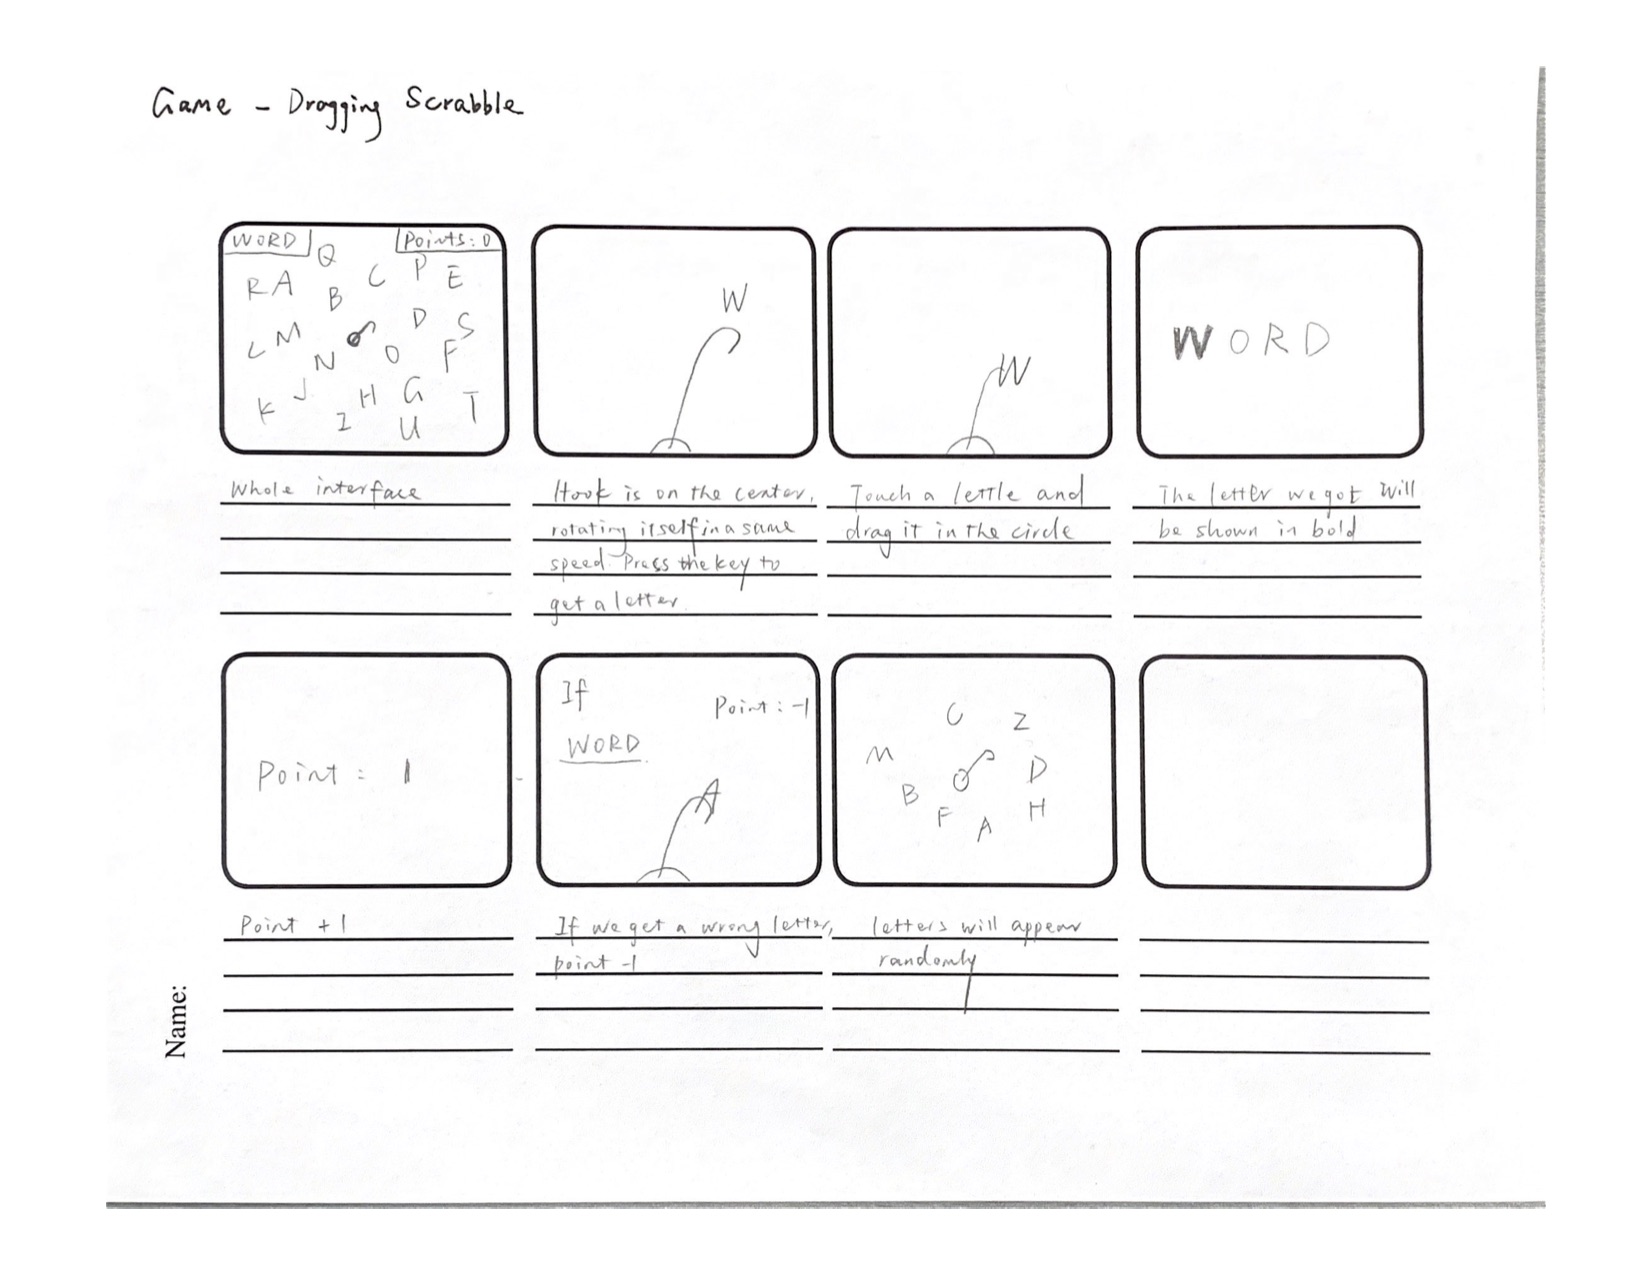 Game - Dragging Scrabble
WORD
Points: 0
Q
R A
B
C
P
E
L
M
N
D
O
S
F
K
J
I
H
G
U
T
W
W
WORD
Whole interface
Hook is on the center,
rotating itself in a same
speed. Press the key to
get a letter.
Touch a lettle and
drag it in the circle
The letter we got will
be shown in bold
Point : 1
If
Point : -1
WORD
A
C
Z
M
D
B
H
F
A
Point +1
If we get a wrong letter,
point -1
letters will appear
randomly
Name: